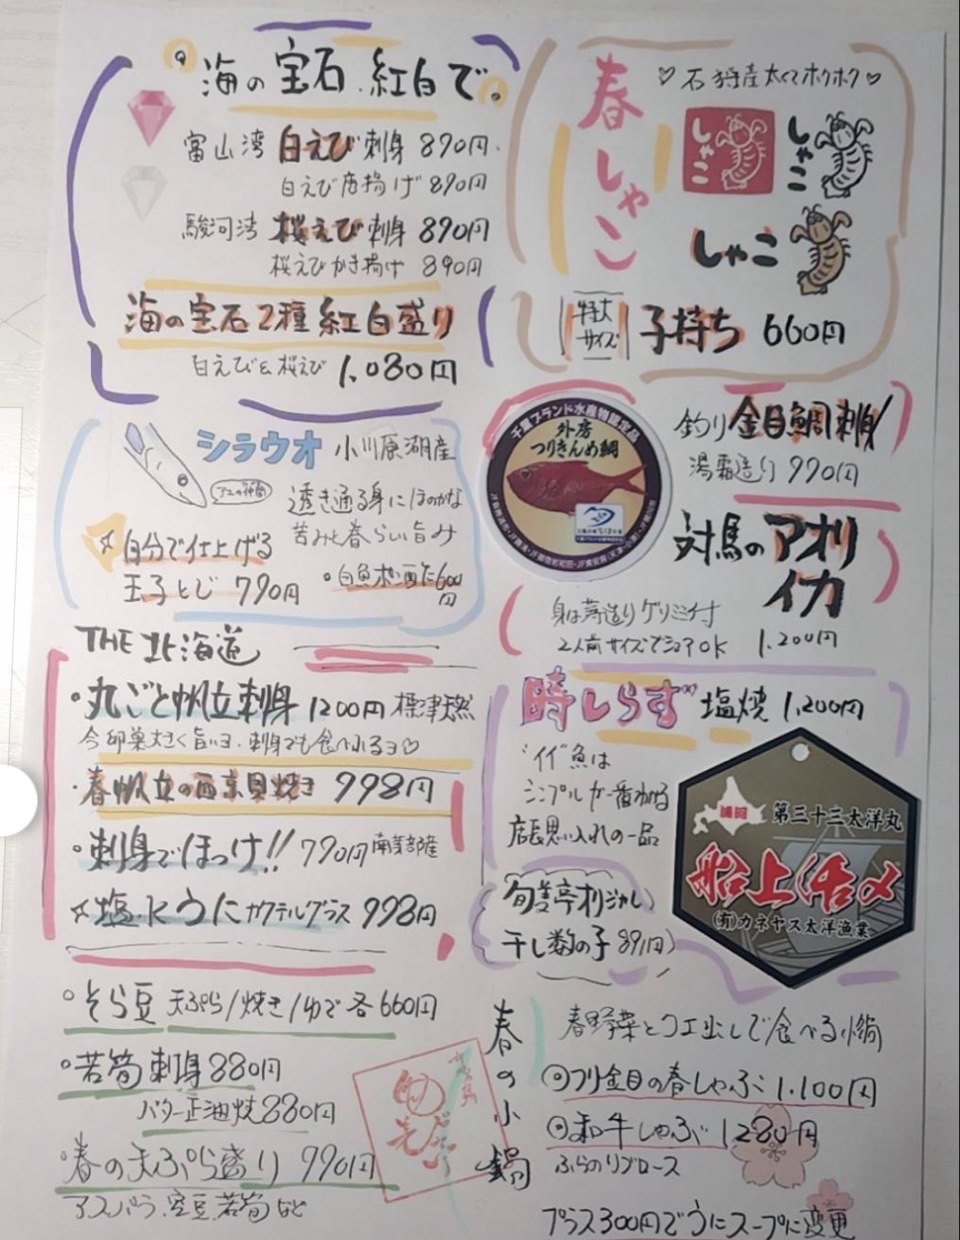 海の宝石.紅白で。
富山湾 白えび刺身 890円.
白えび唐揚げ 890円
駿河湾 桜えび刺身 890円
桜えびかき揚げ 890円
海の宝石2種紅白盛り
白えび&桜えび 1,080円
春しゃこ
♡石狩産太くてホクホク♡
しゃこ
しゃこ
しゃこ
特大サイズ 子持ち 660円
シラウオ 小川原湖産
透き通る身にほのかな
苦みと春らしい旨み
自分で仕上げる
玉子とじ 790円
千葉ブランド水産物認定品
外房
つりきんめ鯛
釣り金目鯛刺身
湯霜造り 990円
対馬のアオリ
イカ
身は薄造りゲソミミ付
2人前サイズでシェアOK 1,200円
THE 北海道
・丸ごと帆立刺身 1200円 標津天然
今卵巣大きく旨いヨ.刺身でも食べれるヨ♡
・春帆立の西京貝焼き 998円
・刺身でほっけ!! 790円 南茅部産
塩水うにカクテルグラス 998円
時しらず 塩焼 1,200円
イイ魚は
シンプルが一番わかる
店長思い入れの一品
干し数の子 891円
浦河
第三十三太洋丸
船上活〆
(有)カネヤス太洋漁業
○そら豆 天ぷら/焼き/ゆで各660円
・若筍刺身 880円
バター正油焼 880円
・春の天ぷら盛り 990円
アスパラ.空豆.若筍など
春の小鍋
春野菜と
出しで食べる小鍋
金目の春しゃぶ 1.100円
和牛しゃぶ 1280円
ふらのリブロース
プラス300円でうにスープに変更